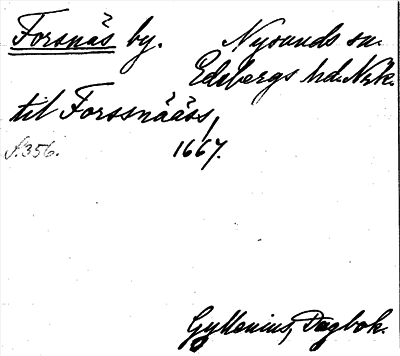 Forsnäs by. Nysunds sn.
Edsbergs hd. Nrk.
til Forssnääss,
f. 356. 1667.
Gyllenius, Dagbok.